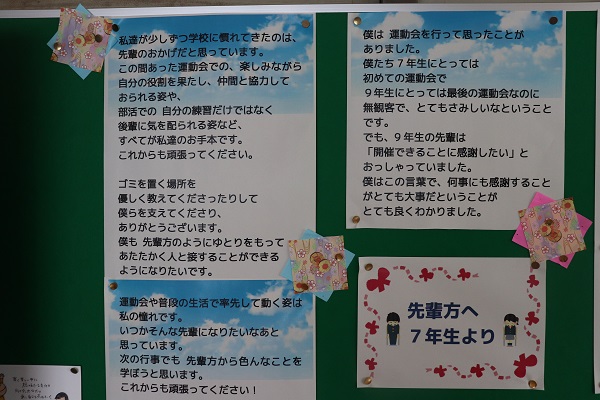 私達が少しずつ学校に慣れてきたのは、
先輩のおかげだと思っています。
この間あった運動会での、楽しみながら
自分の役割を果たし、仲間と協力して
おられる姿や、
部活での 自分の練習だけではなく
後輩に気を配られる姿など、
すべてが私達のお手本です。
これからも頑張ってください。
ゴミを置く場所を
優しく教えてくださったりして
僕らを支えてくださり、
ありがとうございます。
僕も 先輩方のようにゆとりをもって
あたたかく人と接することができる
ようになりたいです。
運動会や普段の生活で率先して動く姿は
私の憧れです。
いつかそんな先輩になりたいなあと
思っています。
次の行事でも 先輩方から色んなことを
学ぼうと思います。
これからも頑張ってください！
僕は 運動会を行って思ったことが
ありました。
僕たち７年生にとっては
初めての運動会で
９年生にとっては最後の運動会なのに
無観客で、とてもさみしいなということ
です。
でも、９年生の先輩は
「開催できることに感謝したい」と
おっしゃっていました。
僕はこの言葉で、何事にも感謝すること
がとても大事だということが
とても良くわかりました。
先輩方へ
７年生より